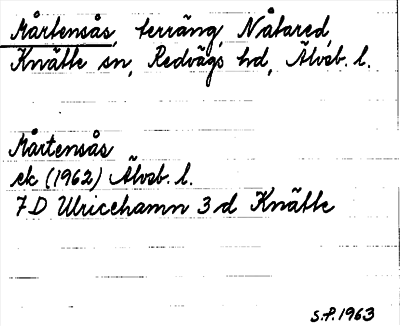 Mårtensås, terräng, Nåtared,
Knätte sn, Redvägs hd, Älvsb. l.
Mårtensås
ek (1962) Älvsb. l.
7D Ulricehamn 3 d Knätte
S.P. 1963